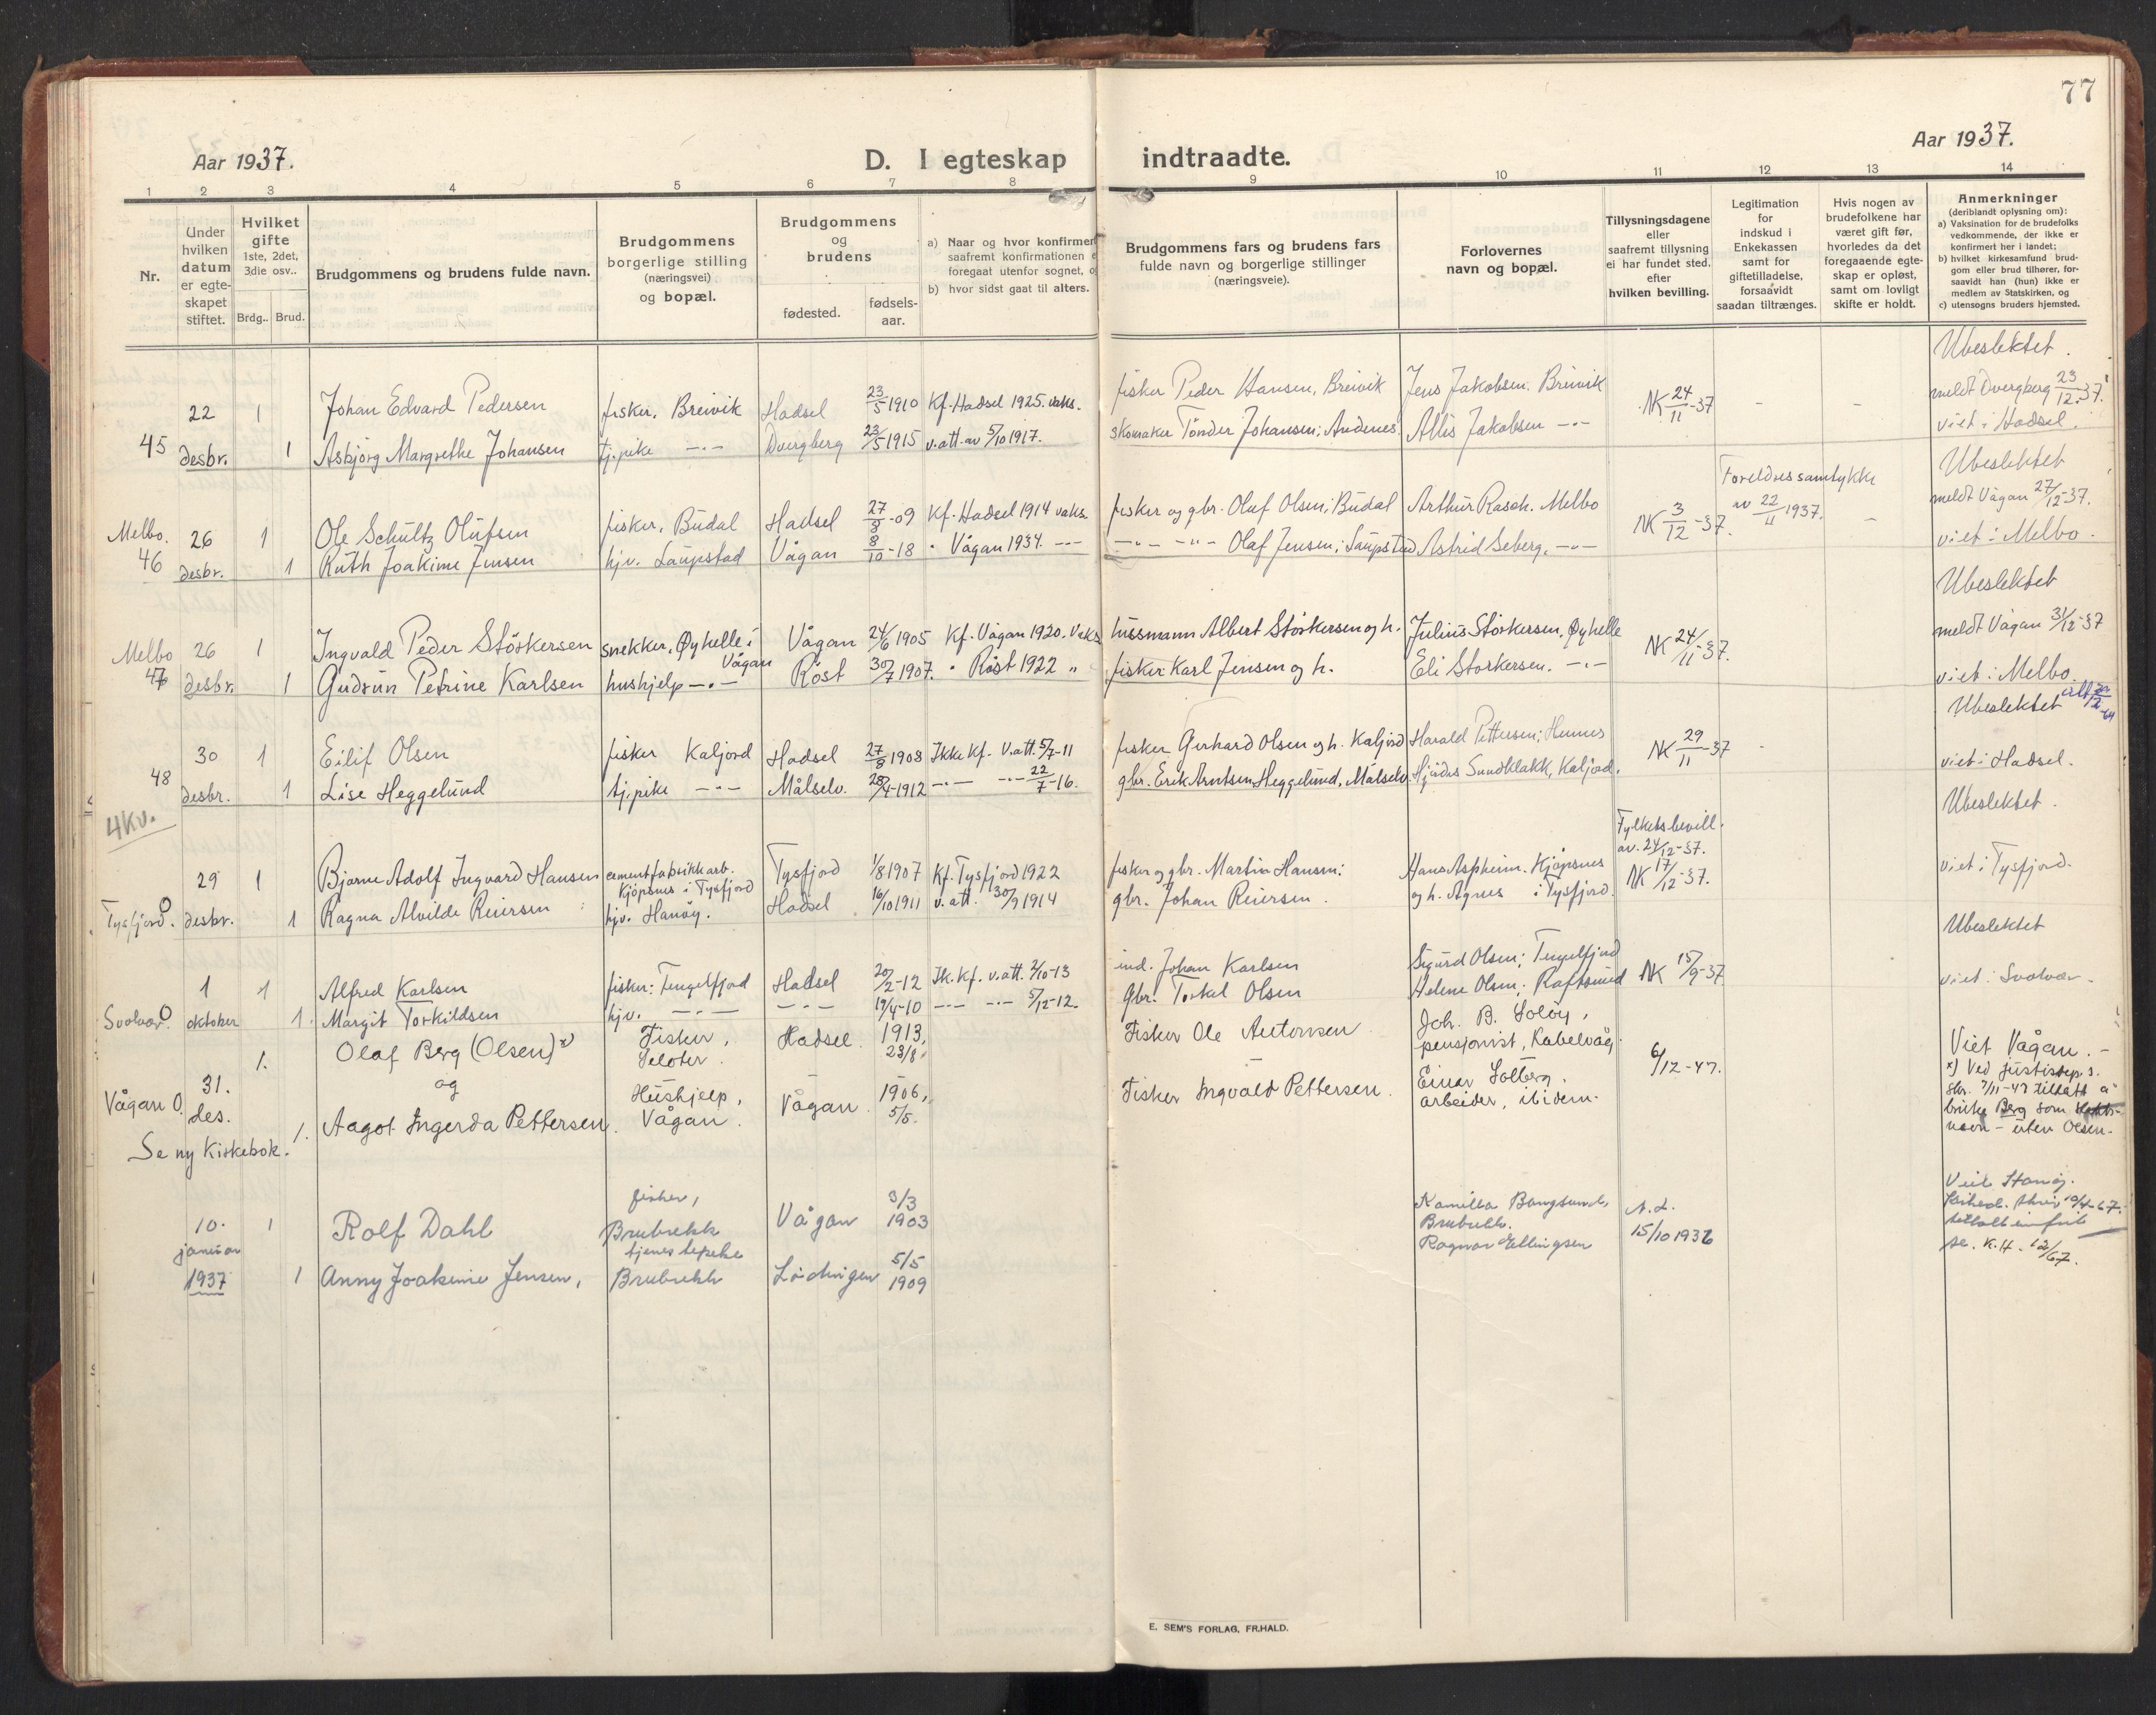 77
Aar 1937.
D. I egteskap indtraadte.
Aar 1937.
1 2 3 4 5 6 7 8 9 10 11 12 13 14
Nr.
Under hvilken datum er egteskapet stiftet.
Hvilket gifte 1ste, 2det, 3die osv..
Brdg.. Brud.
Brudgommens og brudens fulde navn.
Brudgommens borgerlige stilling (næringsvei) og bopæl.
Brudgommens og brudens
fødested. fødsels-aar.
a) Naar og hvor konfirmer
saafremt konfirmationen e
foregaat utenfor sognet, o
b) hvor sidst gaat til alters.
Brudgommens fars og brudens fars
fulde navn og borgerlige stillinger
(næringsveie).
Forlovernes
navn og bopæl.
Tillysningsdagene
eller
saafremt tillysning
ei har fundet sted.
efter
hvilken bevilling.
Legitimation
for
indskud i
Enkekassen
samt for
giftetilladelse,
forsaavidt
saadan tiltrænges.
Hvis nogen av
brudefolkene har
været gift før,
hvorledes da det
foregaaende egte-
skap er opløst,
samt om lovligt
skifte er holdt.
Anmerkninger
(deriblandt oplysning om):
a) Vaksination for de brudefolks
vedkommende, der ikke er
konfirmert her i landet;
b) hvilket kirkesamfund brud-
gom eller brud tilhører, for-
saavidt han (hun) ikke er
medlem av Statskirken, og
c) utensogns bruders hjemsted.
Ubeslektet.
22 1 Johan Edvard Pedersen fisker, Breivik Hadsel 23/5 1910 Kf. Hadsel 1925. vaks. fisker Peder Hansen, Breivik Jens Jakobsen. Breivik NK 24/11-37 - - meldt Dvergberg 23/12.37.
45 desbr. 1 Asbjörg Margrethe Johansen tj.pike -"- Dvergberg 23/5 1915 v.att. av 5/10 1917. skomaker Tönder Johansen; Andenes Allis Jakobsen -"- viet i Hadsel.
Ubeslektet
Foreldres samtykke
av 22/11 1937.
Melbo. 26 1 Ole Schultz Olufsen fisker, Budal Hadsel 27/8-09 Kf. Hadsel 1914 vaks. fisker og gbr. Oluf Olsen; Budal Arthur Rasch. Melbo NK 3/12-37. - meldt Vågan 27/12-37.
46 desbr. 1 Ruth Joakime Jensen hjv. Laupstad Vågan 8/10-18 " Vågan 1934. -"- -"- -"- Olaf Jensen; Laupstad Astrid Seberg. -"- viet i Melbo.
Ubeslektet
Melbo 26 1 Ingvald Peder Störkersen snekker, Øyhelle i Vågan Vågan 24/6 1905 Kf. Vågan 1920. Vaks husmann Albert Störkersen og h. Julius Störkersen, Øyhelle NK 24/11-37. meldt Vågan 31/12-37
47 desbr. 1 Gudrun Petrine Karlsen hushjelp -"- Röst 30/7 1907. " Röst 1922 " fisker Karl Jensen og h. Eli Storkersen. -"- viet i Melbo.
Ubeslektet
30 1 Eilif Olsen fisker Kaljord Hadsel 27/8 1908 Ikke Kf. V.att. 5/7-11 fisker Gerhard Olsen og h. Kaljord Harald Pettersen; Hennes NK 29/11-37 - viet i Hadsel.
48 desbr. 1 Lise Heggelund tj.pike -"- Målselv. 28/4-1912 -"- -"- 22/7-16. gbr. Erik Arntsen Heggelund, Målselv. Hjördis Sundklakk, Kaljord.
Ubeslektet.
4 Kv.
Fylkets bevill.
av. 24/12-37.
29 1 Bjarne Adolf Ingvard Hansen cementfabrikkarb. Kjöpsnes i Tysfjord Tysfjord 1/8 1907 Kf. Tysfjord 1922 fisker og gbr. Martin Hansen; Hans Aspheim. Kjöpsnes NK 17/12-37. viet i Tysfjord.
Tysfjord. 0 desbr. 1 Ragna Alvilde Reiersen hjv. Hanöy. Hadsel 16/10 1911 v. att. 30/9 1914 gbr. Johan Reiersen. og h. Agnes i Tysfjord.
Ubeslektet
1 1 Alfred Karlsen fisker: Tengelfjord Hadsel 20/2-12 Ik. Kf. v.att. 2/10-13 ind. Johan Karlsen Sigurd Olsen; Tengelfjord NK 15/9-37 viet i Svolvær.
Svolvær 0 oktober 1. Margit Torkildsen hjv. -"- -"- 19/4-10 -"- -"- 5/12-12. Gbr. Torkel Olsen Helene Olsen; Raftsund
1. Olaf Berg (Olsen) x) Fisker, Hadsel. 1913, 23/8. Fisker Ole Antonsen Joh. B. Solöy, pensjonist, Kabelvåg 6/12-47. Viet Vågan. -
31. og
Vågan 0. des. 1. Aagot Ingerda Pettersen. Hushjelp, Vågan. Vågan. 1906, 5/5. Fisker Ingvald Pettersen. Einar Solberg. arbeider, ibidem.
x) Ved justisdep.s.
skr. 7/11-47 tillatt å
bruke Berg som
navn - uten Olsen.
Se ny Kirkebok.
10. 1 Rolf Dahl fisker, Brubrekk Vågan 3/3 1903 Kamilla Bangsund, Brubrekk. N.L. 15/10 1936
januar
1937 1 Anny Joakime Jensen, tjenestepike Brubrekk Lödingen 5/5 1909 Ragnar Ellingsen
E. SEM'S FORLAG, FR.HALD.